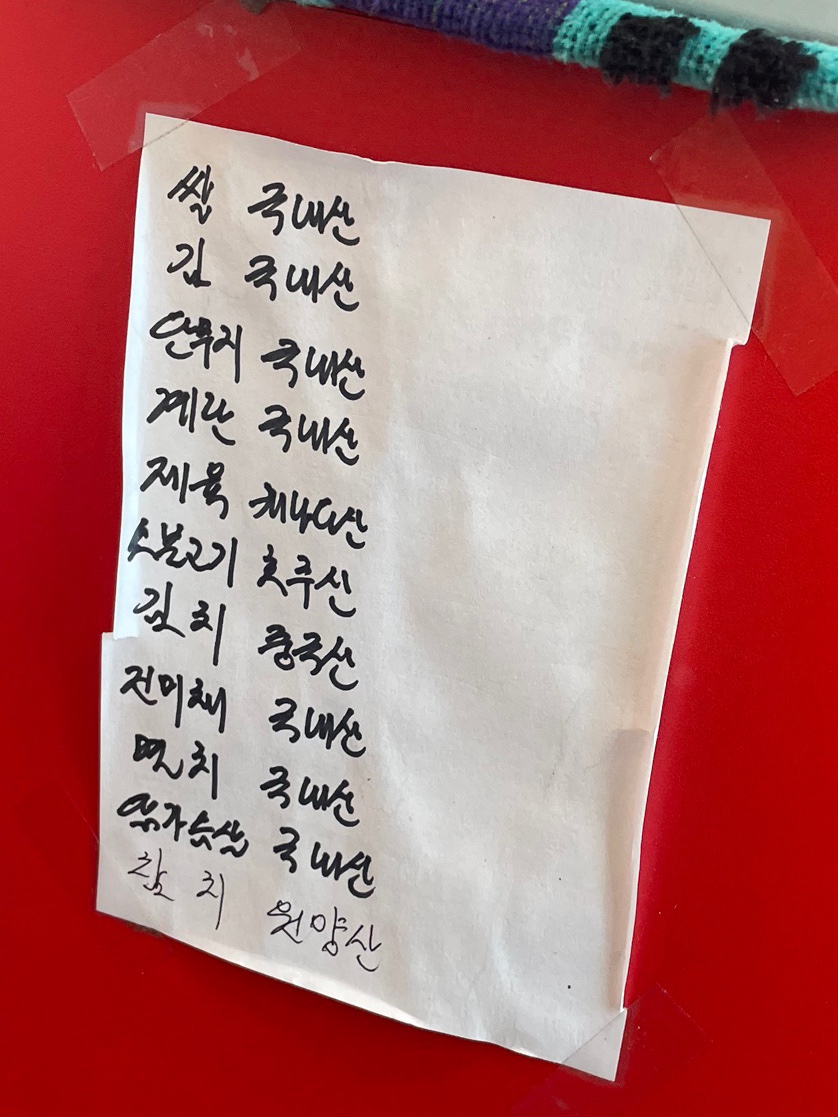 쌀 국내산
김 국내산
단무지 국내산
계란 국내산
제육 캐나다산
소불고기 호주산
김치 중국산
진미채 국내산
멸치 국내산
닭가슴살 국내산
참치 원양산